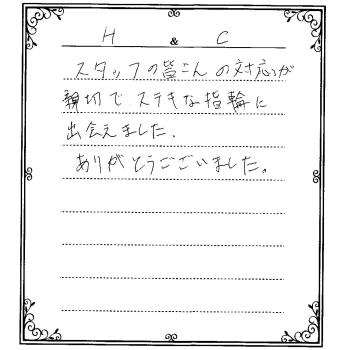 H & C
スタッフの皆さんの対応が
親切で、ステキな指輪に
出会えました。
ありがとうございました。